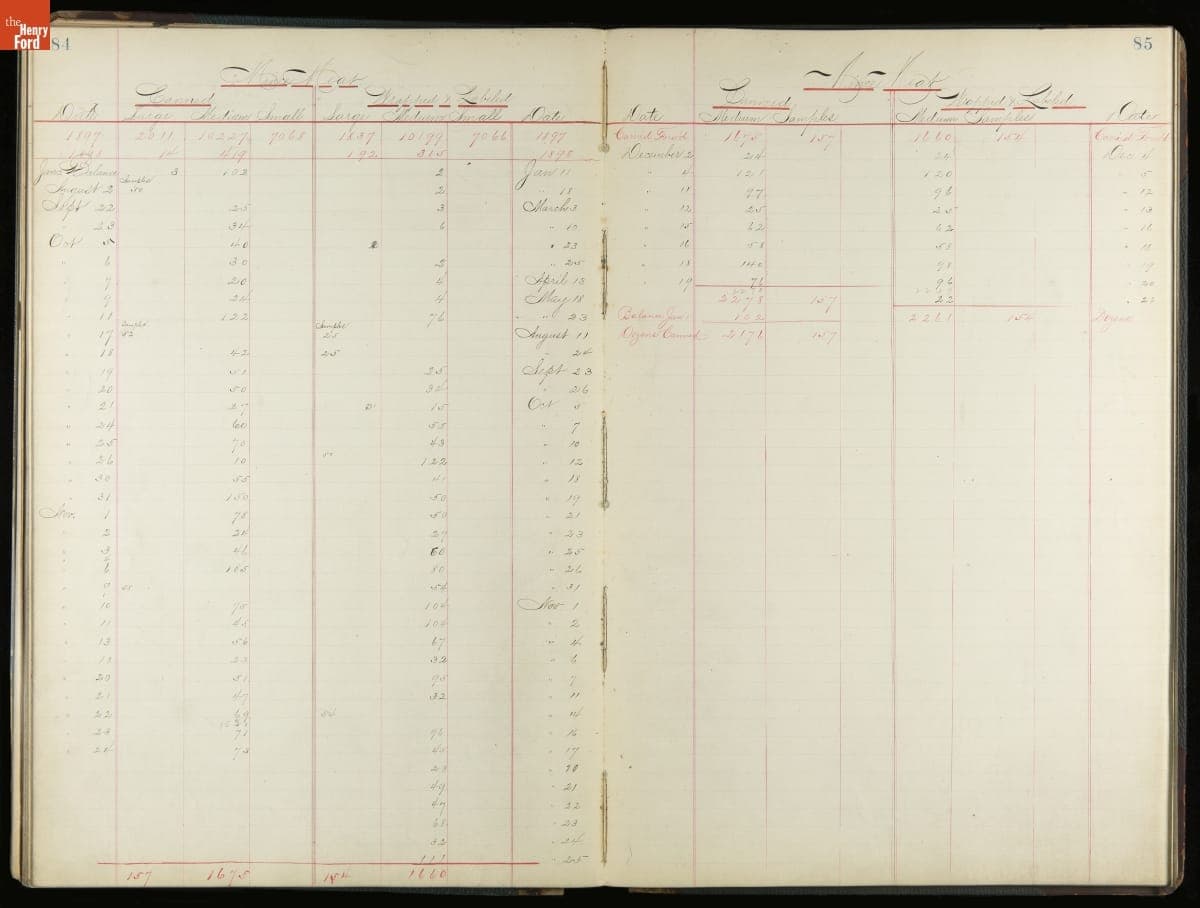 the Henry Ford
84
Mince Meat
Canned Wrapped & Labeled
Date Large Medium Small Large Medium Small Date
1897 2011 10227 7068 1837 10199 7066 1897
1898 14 419 192 315 1898
Balance 3 102 2 Jan 11
August 2 Samples 50 2 " 18
Sept 22 25 3 March 3
" 23 34 6 " 10
Oct 5 40 " 23
" 6 30 2 " 25
" 7 20 4 April 13
" 9 24 4 May 18
" 11 122 76 " 23
" 17 Samples 52 Samples 25 August 11
" 18 42 25 " 24
" 19 51 25 Sept 23
" 20 50 34 " 26
" 21 27 2 15 Oct 5
" 24 60 55 " 7
" 25 70 43 " 10
" 26 10 122 " 12
" 30 55 41 " 18
" 31 150 50 " 19
Nov. 1 78 50 " 21
" 2 24 27 " 23
" 3 46 60 " 25
" 6 105 80 " 26
" 9 54 " 31
" 10 75 104 Nov 1
" 11 45 104 " 2
" 13 56 67 " 4
" 23 32 " 6
" 20 51 95 " 7
" 21 47 32 " 11
" 22 69 54 " 14
" 23 71 96 " 16
" 24 73 45 " 17
" 20
49 " 21
47 " 22
" 23
32 " 24
111 " 25
157 1675 154 1660
85
Mince Meat
Canned Wrapped & Labeled
Date Medium Samples Medium Samples Date
Carried Forw'd 1675 157 1660 154 Carried Forw'd
December 2 24 24 Dec 4
" 4 121 120 " 5
" 11 97 96 " 12
" 12 25 25 " 13
" 15 62 62 " 16
" 16 58 58 " 18
" 18 140 98 " 19
" 19 76 96 " 20
2278 157 22 " 22
Balance Jan 1 102 2261 154 Dozens
Dozens Canned 2176 157